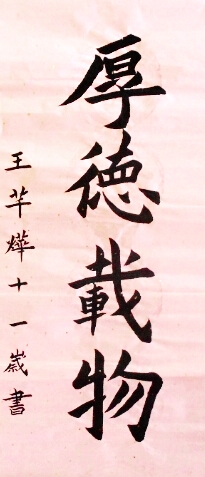 厚德載物
王芊燁十一歲書